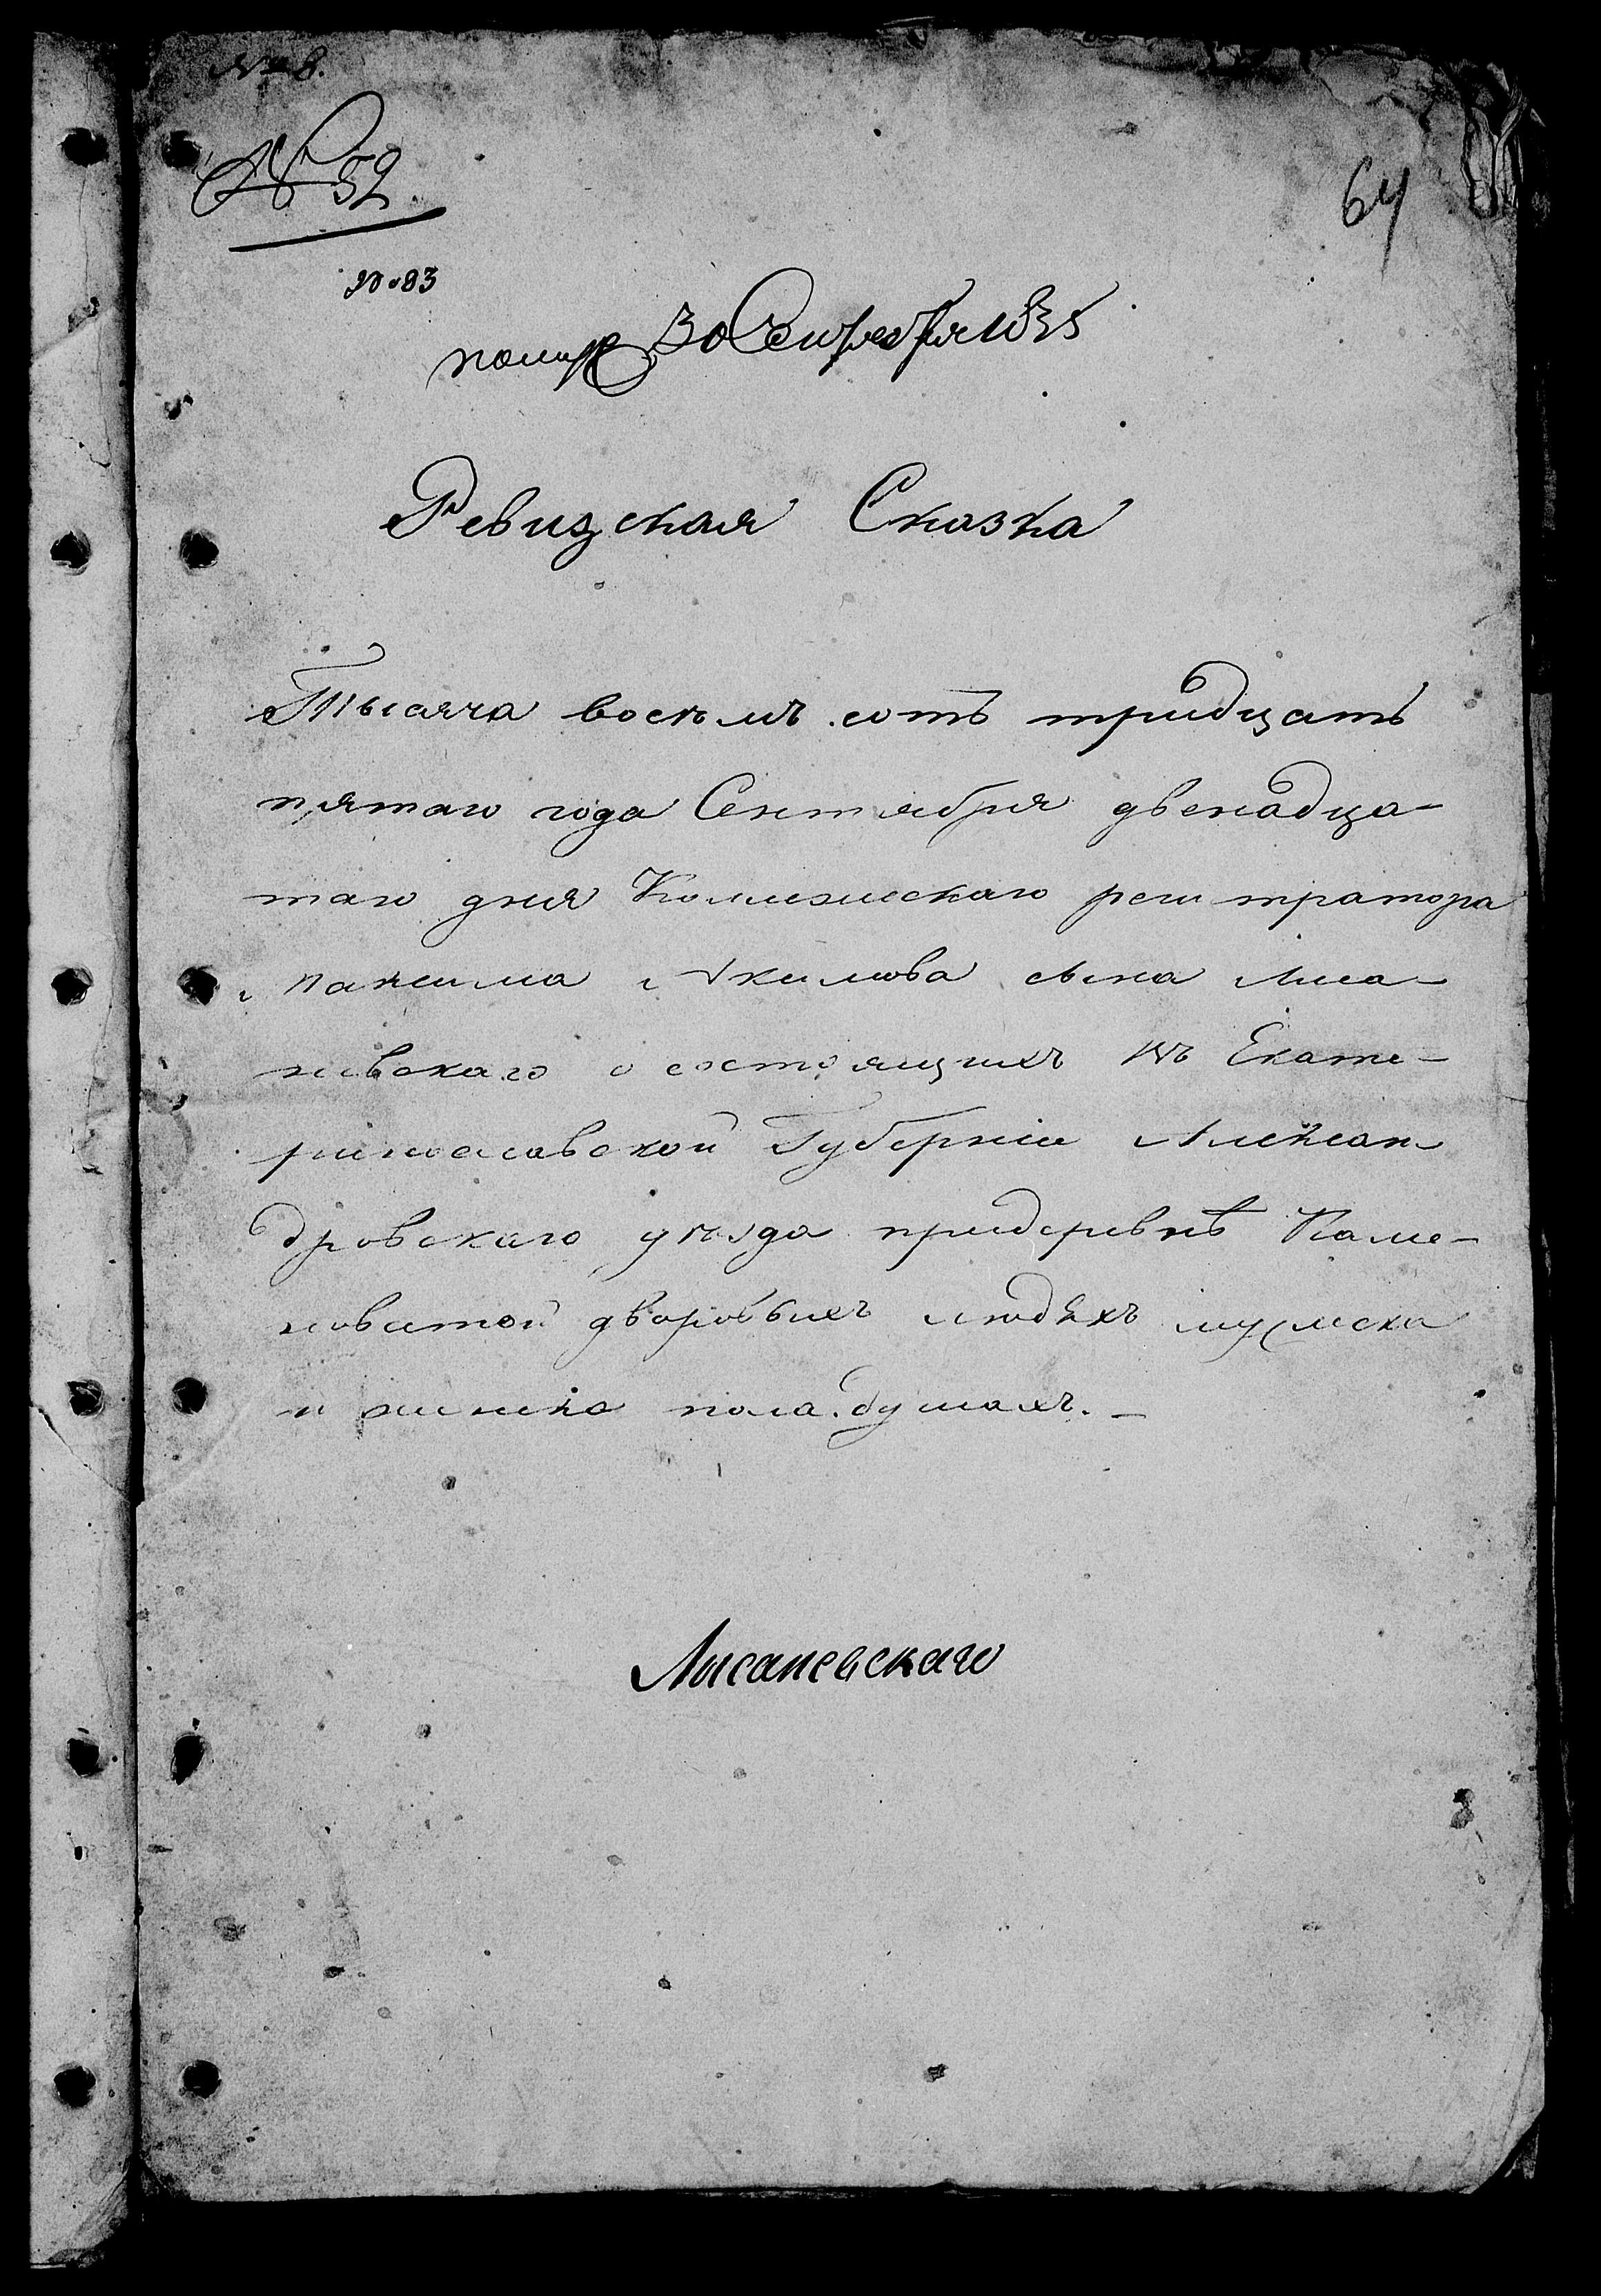 № 8.
№ 52
64
№ 83
получ. 30 Сентября 1835
Ревизская Сказка
Тысяча восемъ сотъ тридцать
пятаго года Сентября двенадца-
таго дня Коллежскаго регистратора
Максима Акимова сына Лиса-
невскаго о состоящихъ въ Екате-
ринославской Губерніи Алексан
дровскаго уѣзда придеревнѣ Каме-
новатой дворовыхъ людѣхъ мужеска
и женска пола душахъ. –
Лисаневскаго